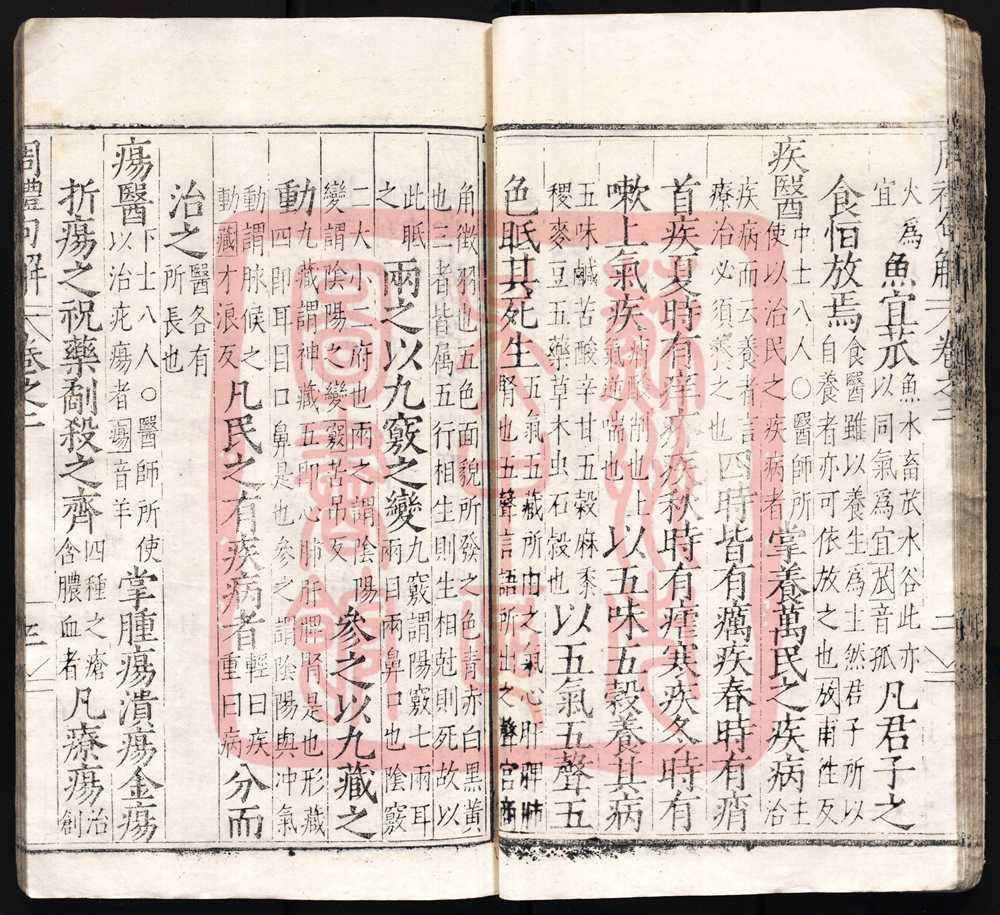 周禮句解 卷之二 二
火為宜魚宜苽魚水畜苽水谷此亦以同氣為宜苽音孤凡君子之
食恒放焉食醫雖以養生為主然君子所以自養者亦可依放之也放甫往反
疾醫中士八人〇醫師所使以治民之疾病者掌養萬民之疾病主治
疾病而云養者言療治必須養之也四時皆有癘疾春時有痟
首疾夏時有痒疥疾秋時有瘧寒疾冬時有
嗽上氣疾也上氣逆喘也以五味五穀養其病
五味醎苦酸辛甘五穀麻黍稷麥豆五藥草木虫石穀也以五氣五聲五
色眂其死生五氣五藏所出之氣心肝脾肺腎也五聲言語所出之聲宮商
角徵羽也五色面貌所發之色青赤白黑黃也三者皆属五行相生則生相尅則死故以
此眂之兩之以九竅之變九竅謂陽竅七兩耳兩目兩鼻口也陰竅
二大小二府也兩之謂陰陽變謂陰陽之變竅苦吊反參之以九藏之
動九藏謂神藏五即心肺肝脾腎是也形藏四即耳目口鼻是也參之謂陰陽與冲氣
動謂脉候之動藏才浪反凡民之有疾病者輕曰疾重曰病分而
治之醫各有所長也
瘍醫下士八人〇醫師所使以治疕瘍者瘍音羊掌腫瘍潰瘍金瘍
折瘍之祝藥劀殺之齊四種之瘡含膿血者凡療瘍治創
周禮句解 卷之二